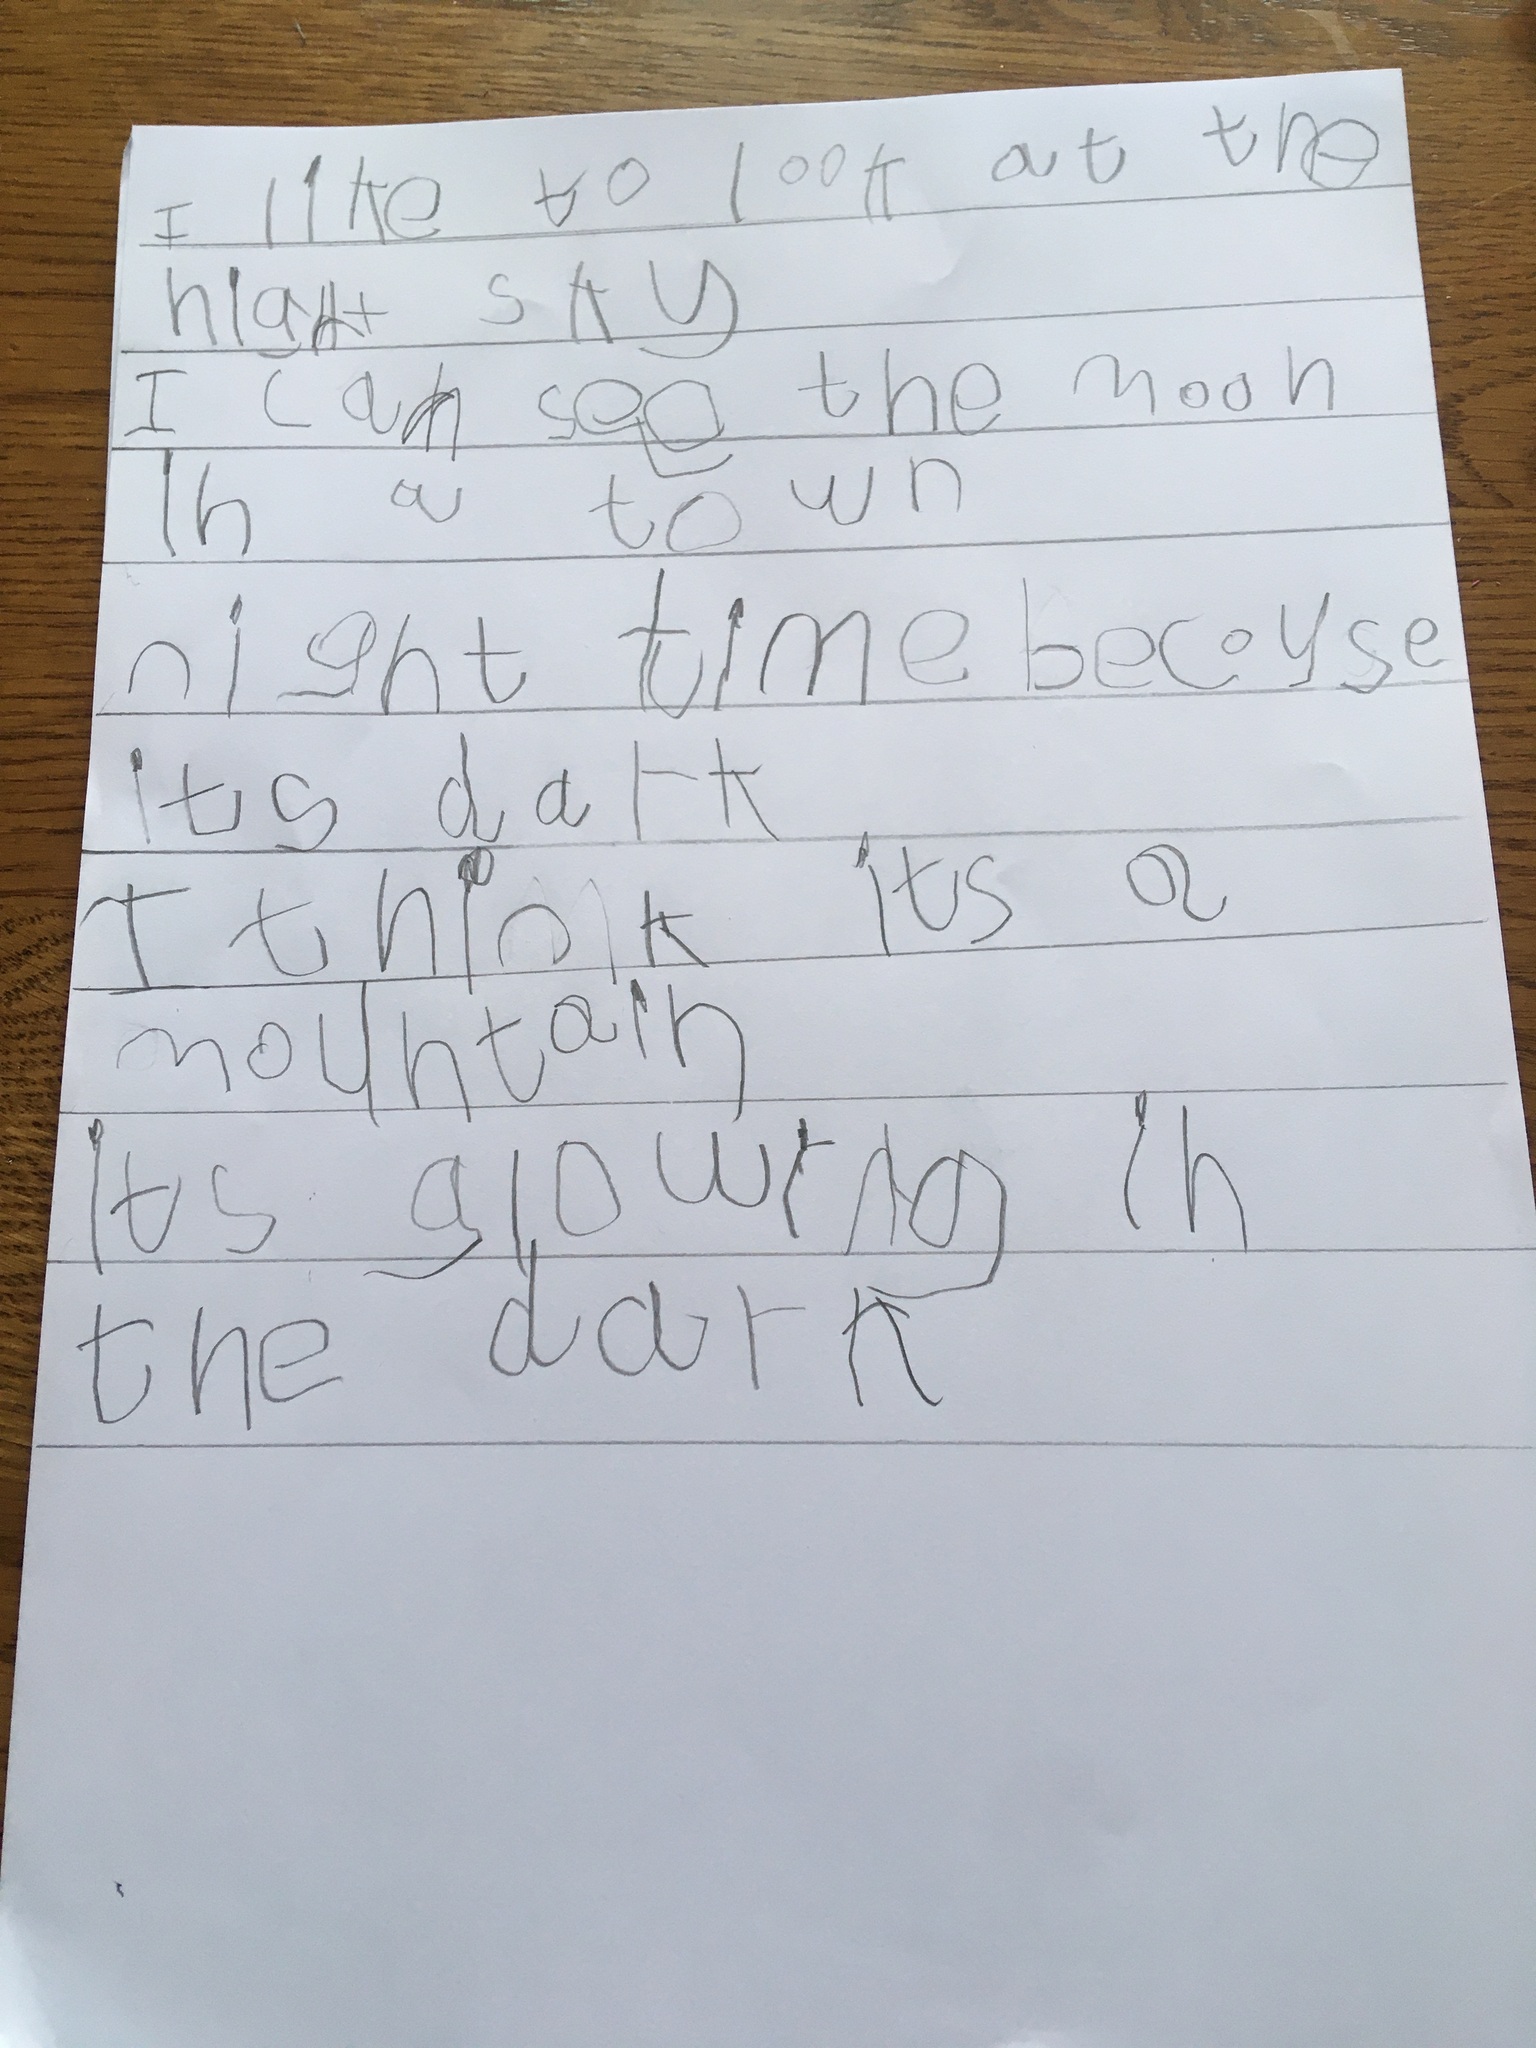 I like to look at the
night sky
I can see the moon
In a town
night time because
its dark
I think its a
mountain
its glowing in
the dark